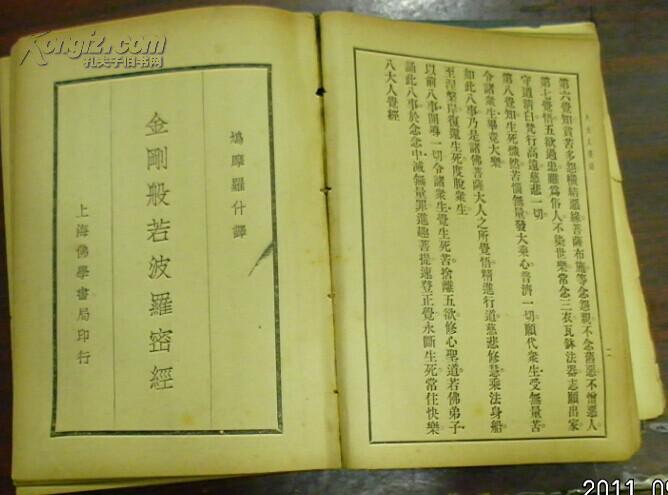 第六覺知貧苦多怨橫結惡緣菩薩布施等念怨親不念舊惡不憎惡人
第七覺悟五欲過患雖爲俗人不染世樂常念三衣瓦鉢法器志願出家
守道清白梵行高遠慈悲一切
第八覺知生死熾然苦惱無量發大乘心普濟一切願代衆生受無量苦
令諸衆生畢竟大樂
如此八事乃是諸佛菩薩大人之所覺悟精進行道慈悲修慧乘法身船
至涅槃岸復還生死度脫衆生
以前八事開導一切令諸衆生覺生死苦捨離五欲修心聖道若佛弟子
誦此八事於念念中滅無量罪進趣菩提速登正覺永斷生死常住快樂
八大人覺經
八大人覺經
二
鳩摩羅什譯
金剛般若波羅密經
上海佛學書局印行
Kongfz.com
孔夫子旧书网
2011.09